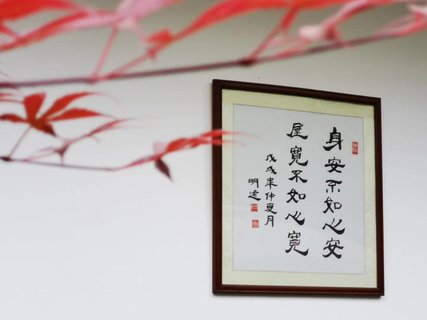 身安不如心安
屋寬不如心寬
戊戌年仲夏月
明遠